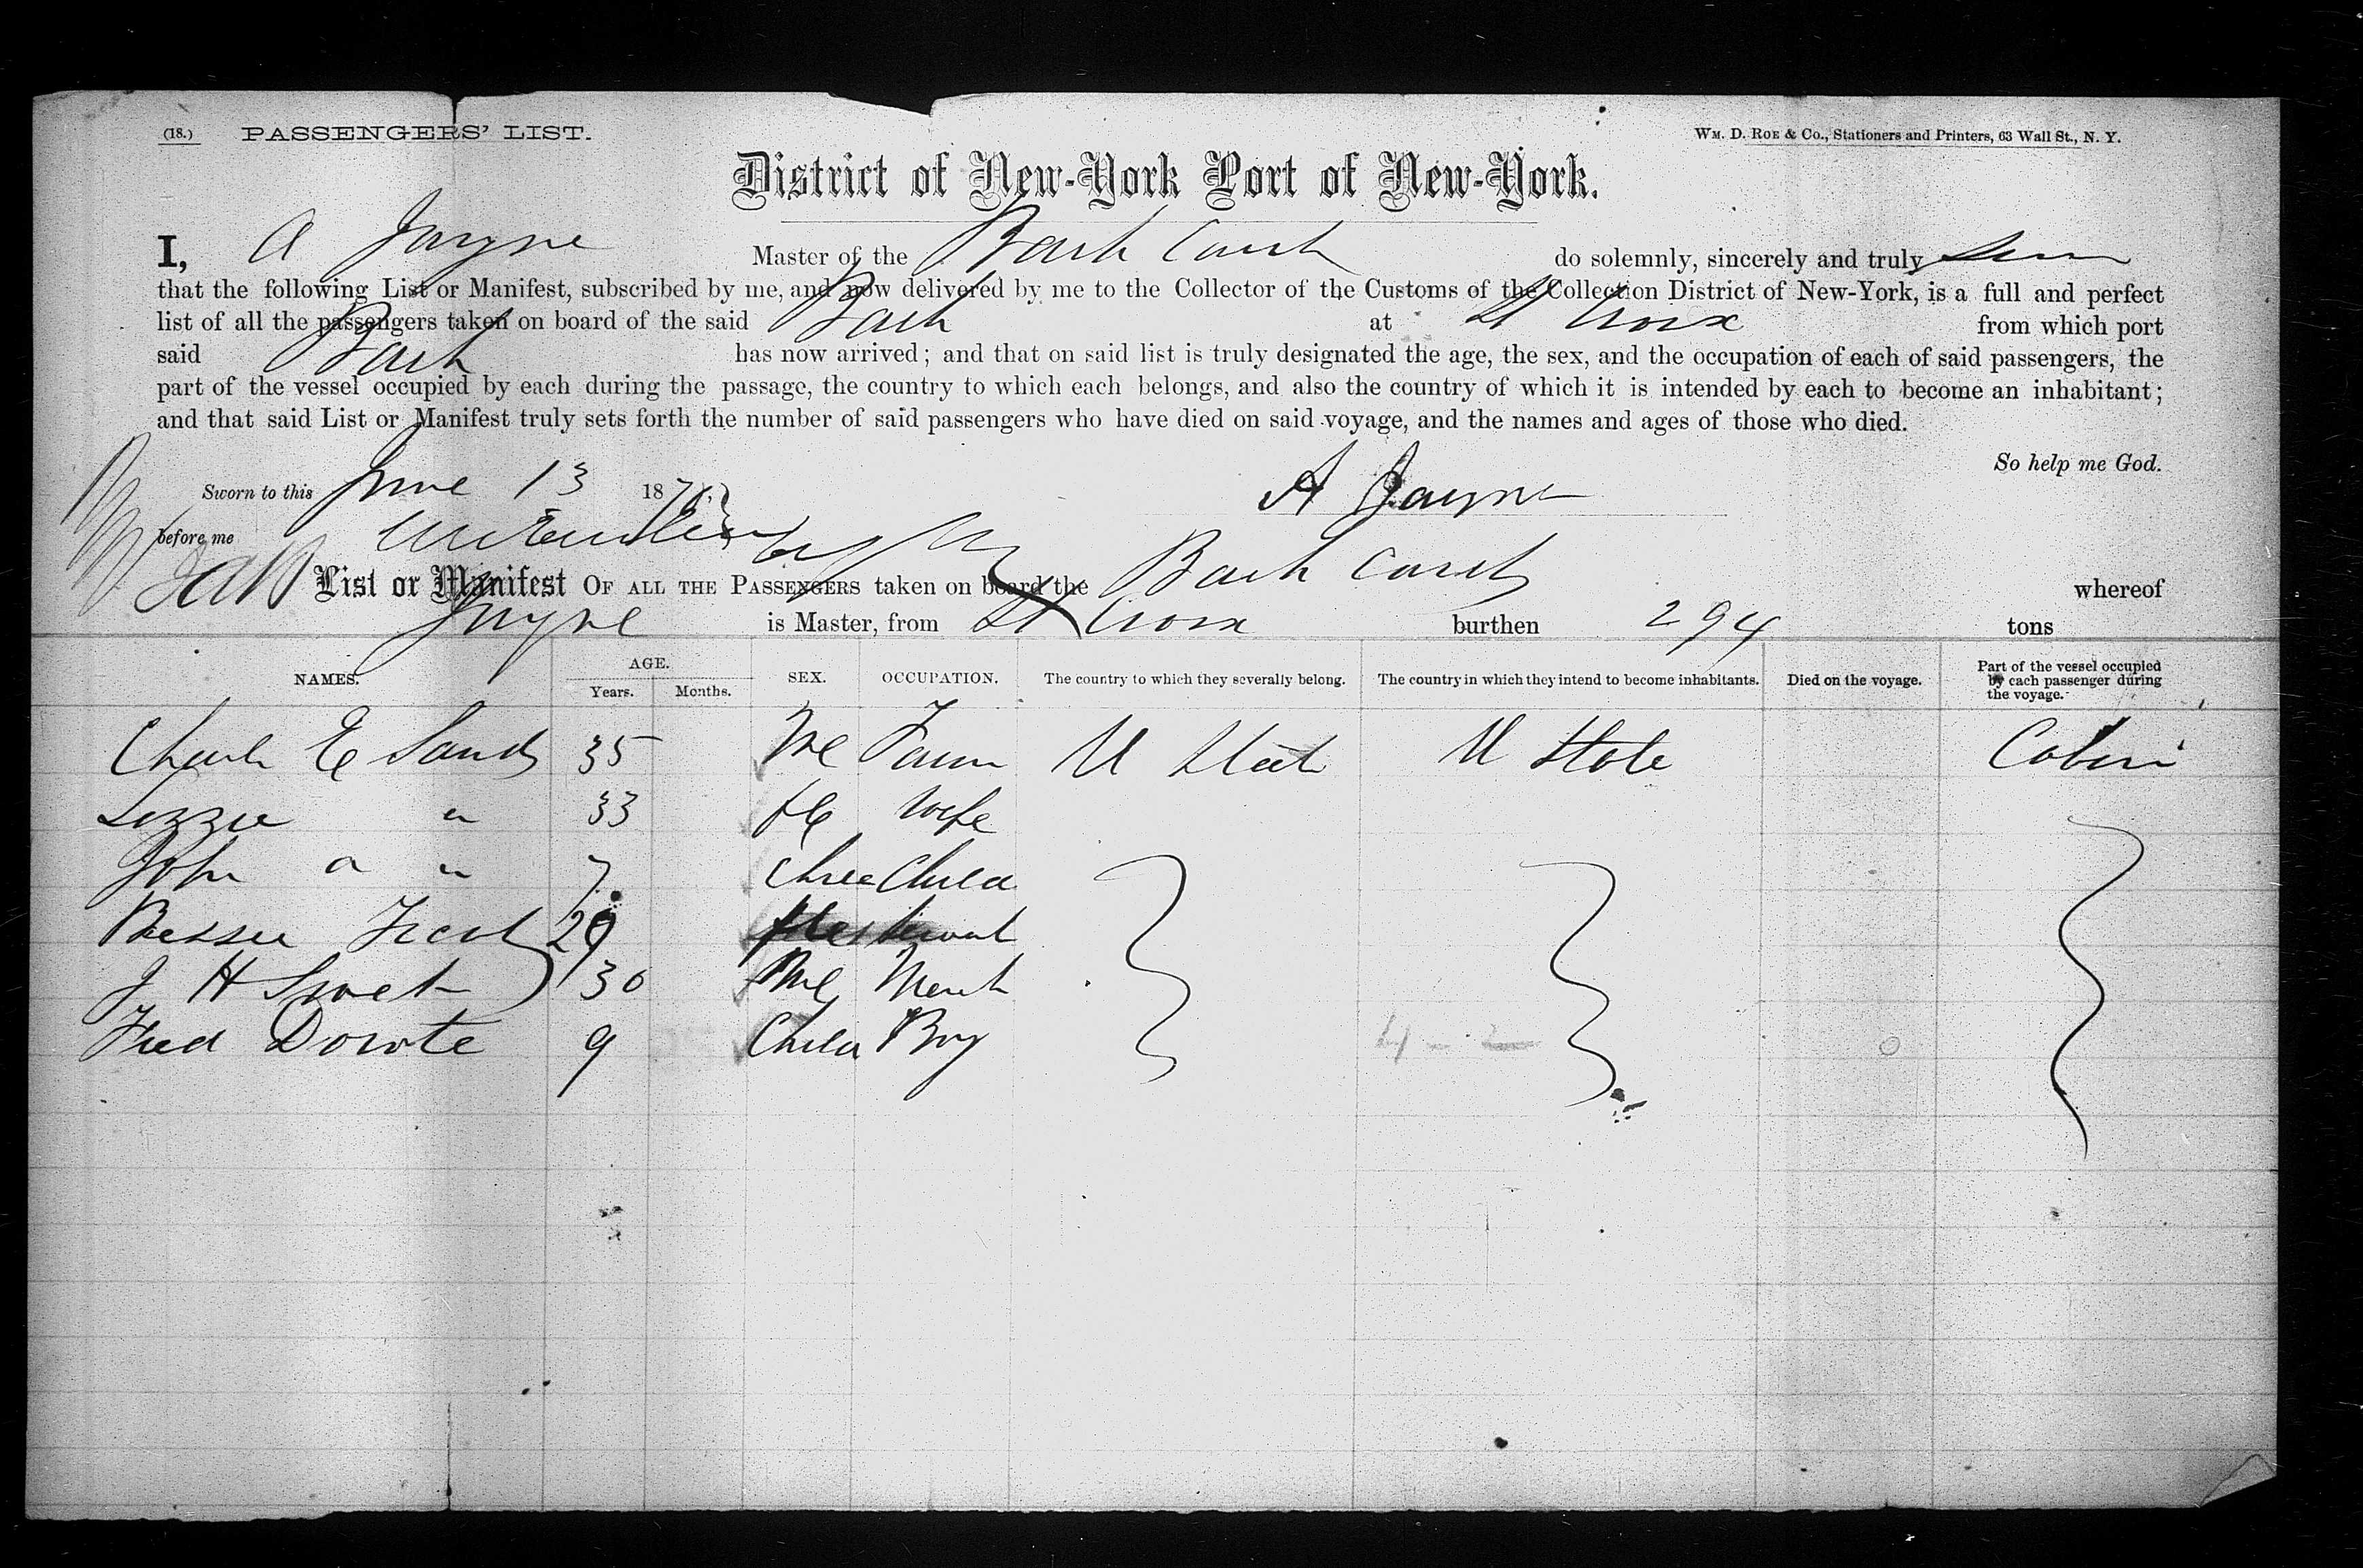 (18.) PASSENGERS' LIST. WM. D. ROE & CO., Stationers and Printers, 63 Wall St., N. Y.
District of New-York Port of New-York.
I, A Jayne Master of the Bark do solemnly, sincerely and truly
that the following List or Manifest, subscribed by me, and now delivered by me to the Collector of the Customs of the Collection District of New-York, is a full and perfect
list of all the passengers taken on board of the said Bark at St Croix from which port
said Bark has now arrived; and that on said list is truly designated the age, the sex, and the occupation of each of said passengers, the
part of the vessel occupied by each during the passage, the country to which each belongs, and also the country of which it is intended by each to become an inhabitant;
and that said List or Manifest truly sets forth the number of said passengers who have died on said voyage, and the names and ages of those who died.
So help me God.
Sworn to this June 13 187 A Jayne
before me
List or Manifest OF ALL THE PASSENGERS taken on board the Bark whereof
Jayne is Master, from St Croix burthen 294 tons
NAMES. AGE. Years. Months. SEX. OCCUPATION. The country to which they severally belong. The country in which they intend to become inhabitants. Died on the voyage. Part of the vessel occupied by each passenger during the voyage.
E Sands 35 Me Farm U U State Cabin
Lizzie " 33 Fe Wife
John a " 7 Child
29 Servant
J H 30 Me Merch
Fred 9 Child Boy